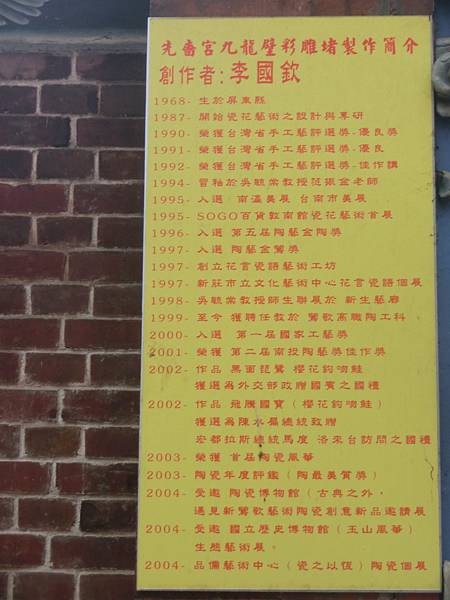 先嗇宮九龍壁彩雕堵製作簡介
創作者:李國欽
1968- 生於屏東縣
1987- 開始瓷花藝術之設計與專研
1990- 榮獲台灣省手工藝評選獎-優良獎
1991- 榮獲台灣省手工藝評選獎-優良
1992- 榮獲台灣省手工藝評選獎-佳作獎
1994- 習釉於吳毓棠教授范振金老師
1995- 入選 南瀛美展 台南市美展
1995- SOGO百貨敦南館瓷花藝術首展
1996- 入選 第五屆陶藝金陶獎
1997- 入選 陶藝金鶯獎
1997- 創立花言瓷語藝術工坊
1997- 新莊市立文化藝術中心花言瓷語個展
1998- 吳毓棠教授師生聯展於 新生藝廊
1999- 至今 獲聘任教於 鶯歌高職陶工科
2000- 入選 第一屆國家工藝獎
2001- 榮獲 第二屆南投陶藝獎佳作獎
2002- 作品 黑面琵鷺 櫻花鈎吻鮭
獲選為外交部政贈國賓之國禮
2002- 作品 飛騰國寶（櫻花鈎吻鮭）
獲選為陳水扁總統致贈
宏都拉斯總統馬度 洛來台訪問之國禮
2003- 榮獲 首屆陶瓷風華
2003- 陶瓷年度評鑑（陶最美質獎）
2004- 受邀 陶瓷博物館（古典之外，
遇見新鶯歌藝術陶瓷創意新品邀請展
2004- 受邀 國立歷史博物館（玉山風華）
生態藝術展。
2004- 品傋藝術中心（瓷之以恆）陶瓷個展